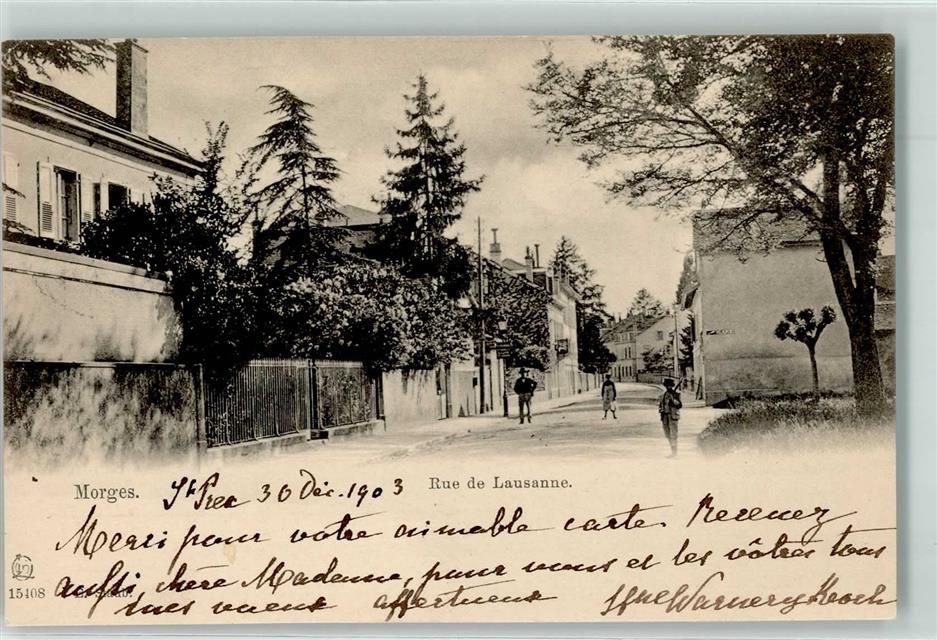 Morges. St Prex 30 Déc. 1903 Rue de Lausanne.
Merci pour votre aimable carte. Recevez
aussi, chère Madame, pour vous et les vôtres tous
mes vœux affectueux
Warnery Koch
15408